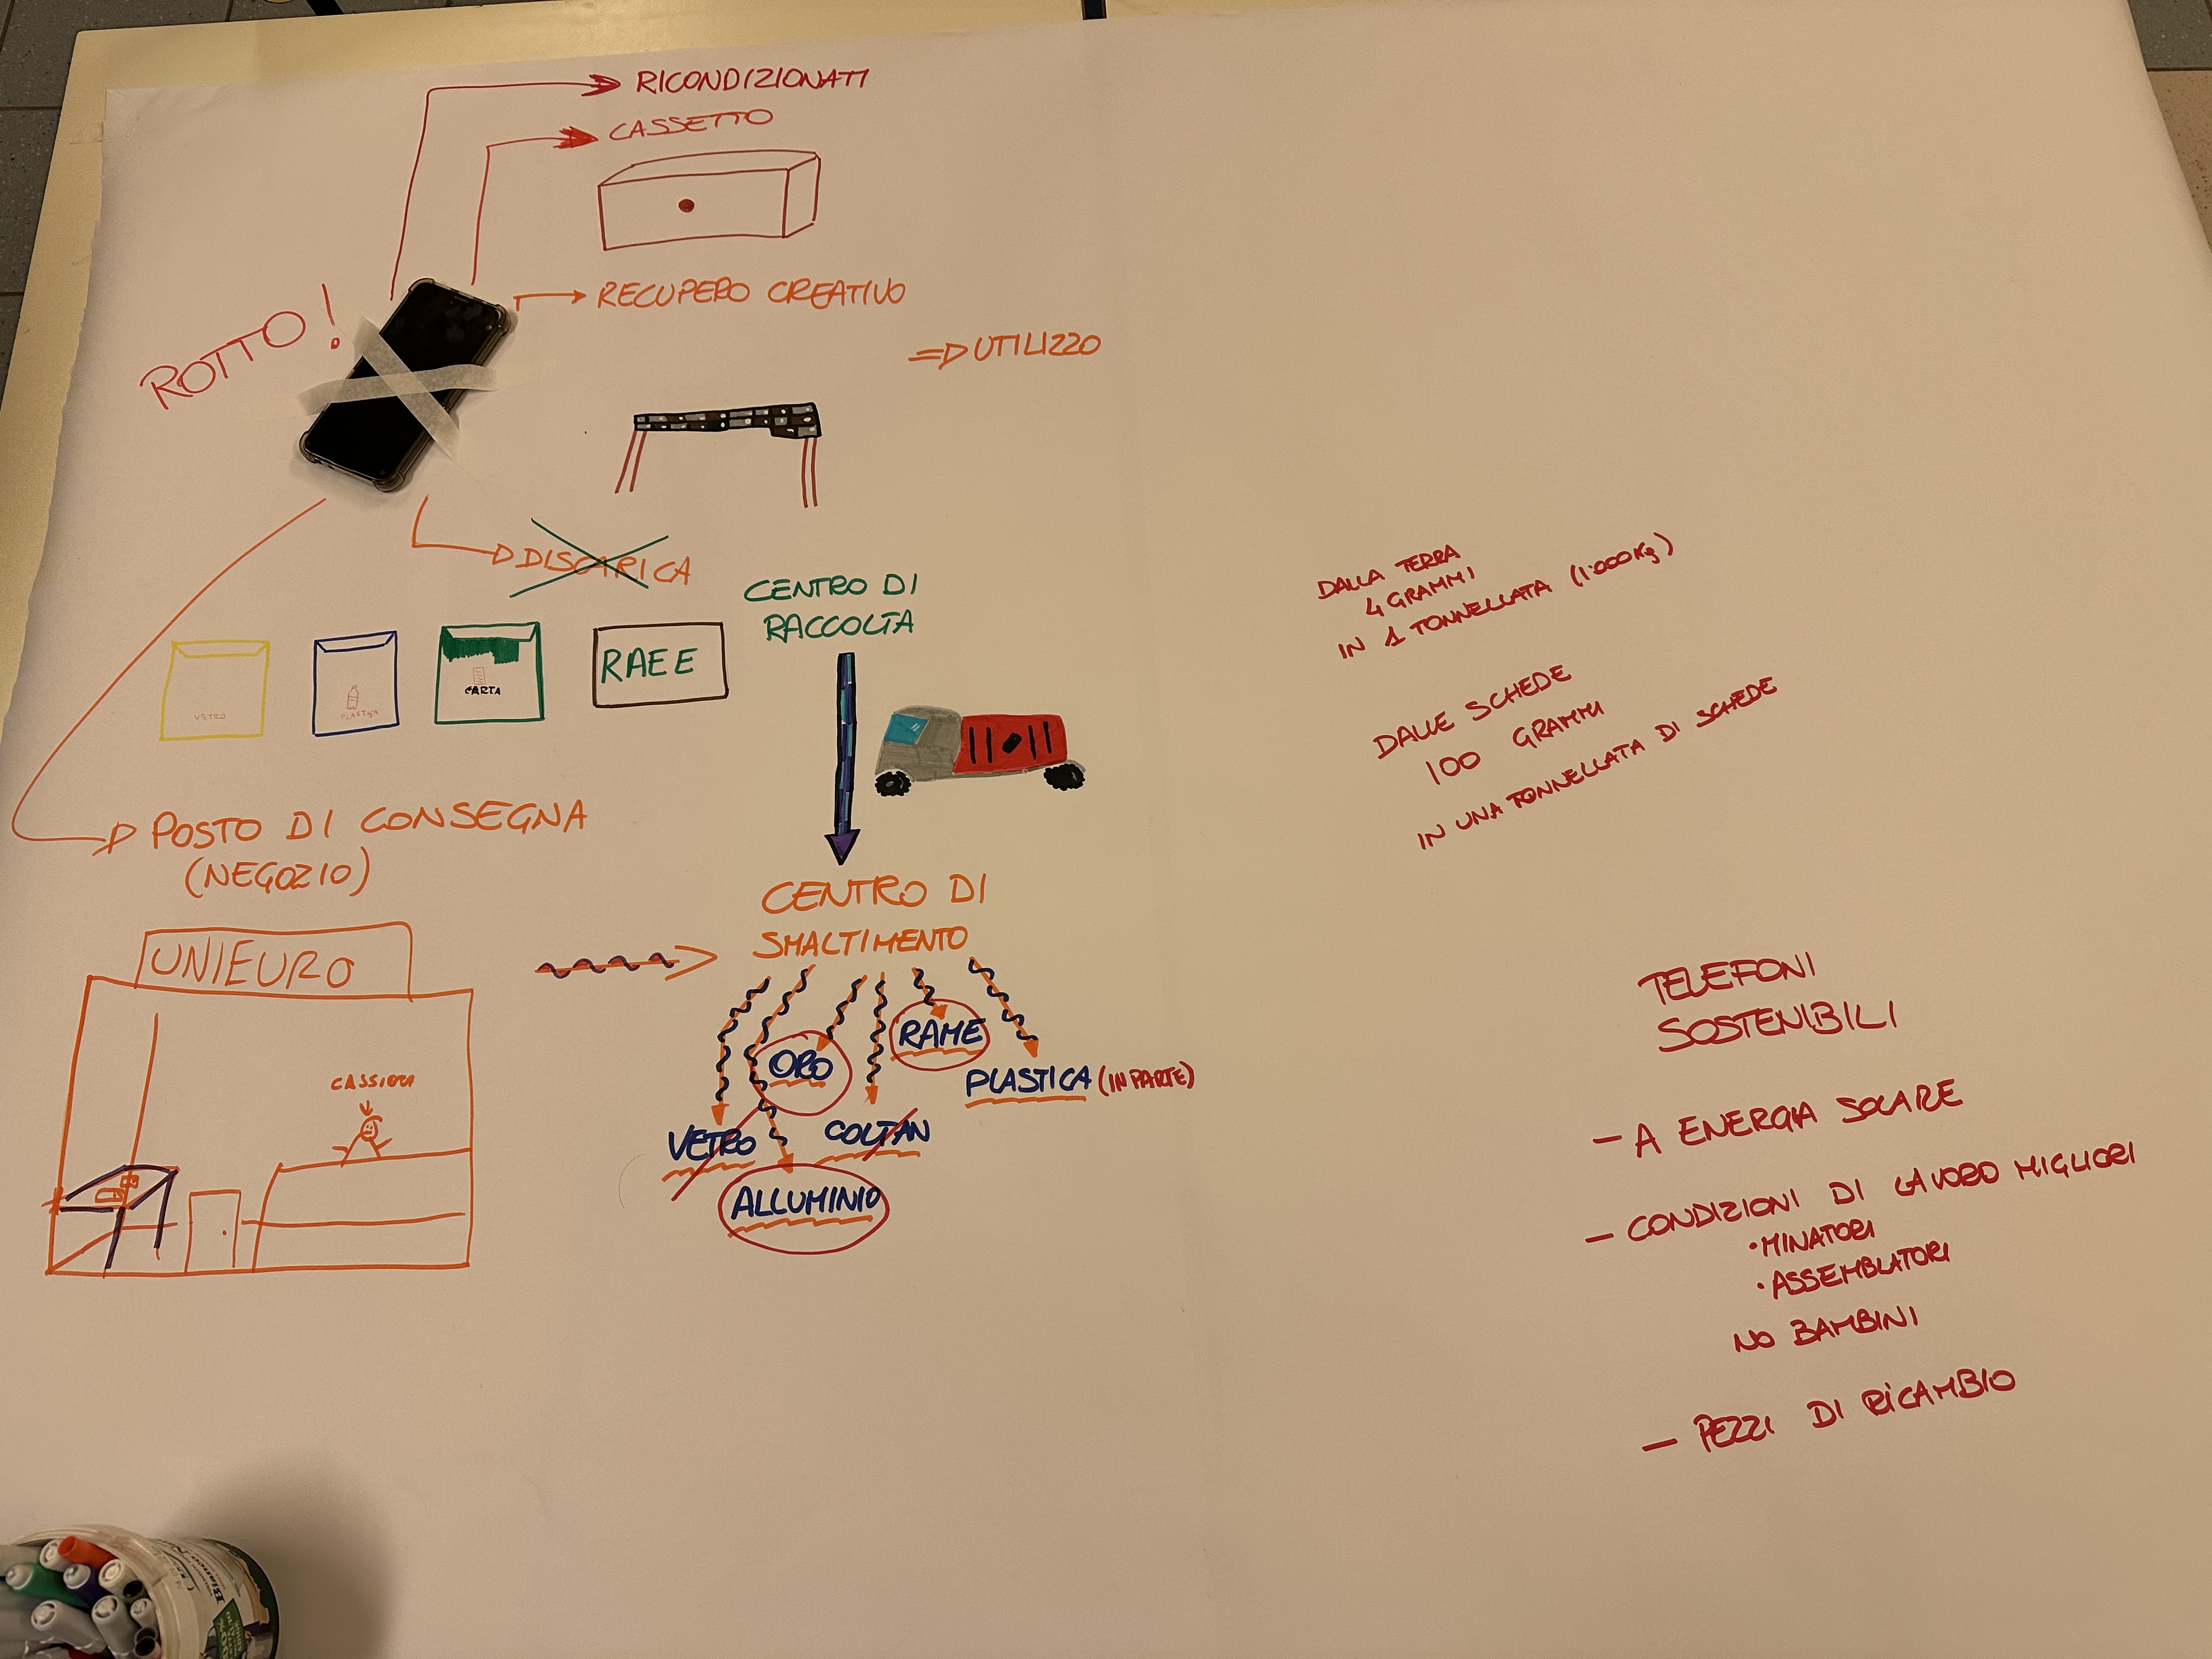 RICONDIZIONATI
CASSETTO
RECUPERO CREATIVO
=D UTILIZZO
ROTTO!
DISCARICA
CENTRO DI
RACCOLTA
VETRO
PLASTICA
CARTA
RAEE
POSTO DI CONSEGNA
(NEGOZIO)
UNIEURO
CENTRO DI
SMALTIMENTO
ORO
RAME
PLASTICA (IN PARTE)
VETRO
COLTAN
ALLUMINIO
DALLA TERRA
4 GRAMMI
IN 1 TONNELLATA (1000 Kg)
DALLE SCHEDE
100 GRAMMI
IN UNA TONNELLATA DI SCHEDE
TELEFONI
SOSTENIBILI
- A ENERGIA SOLARE
- CONDIZIONI DI LAVORO MIGLIORI
• MINATORI
• ASSEMBLATORI
NO BAMBINI
- PEZZI DI RICAMBIO